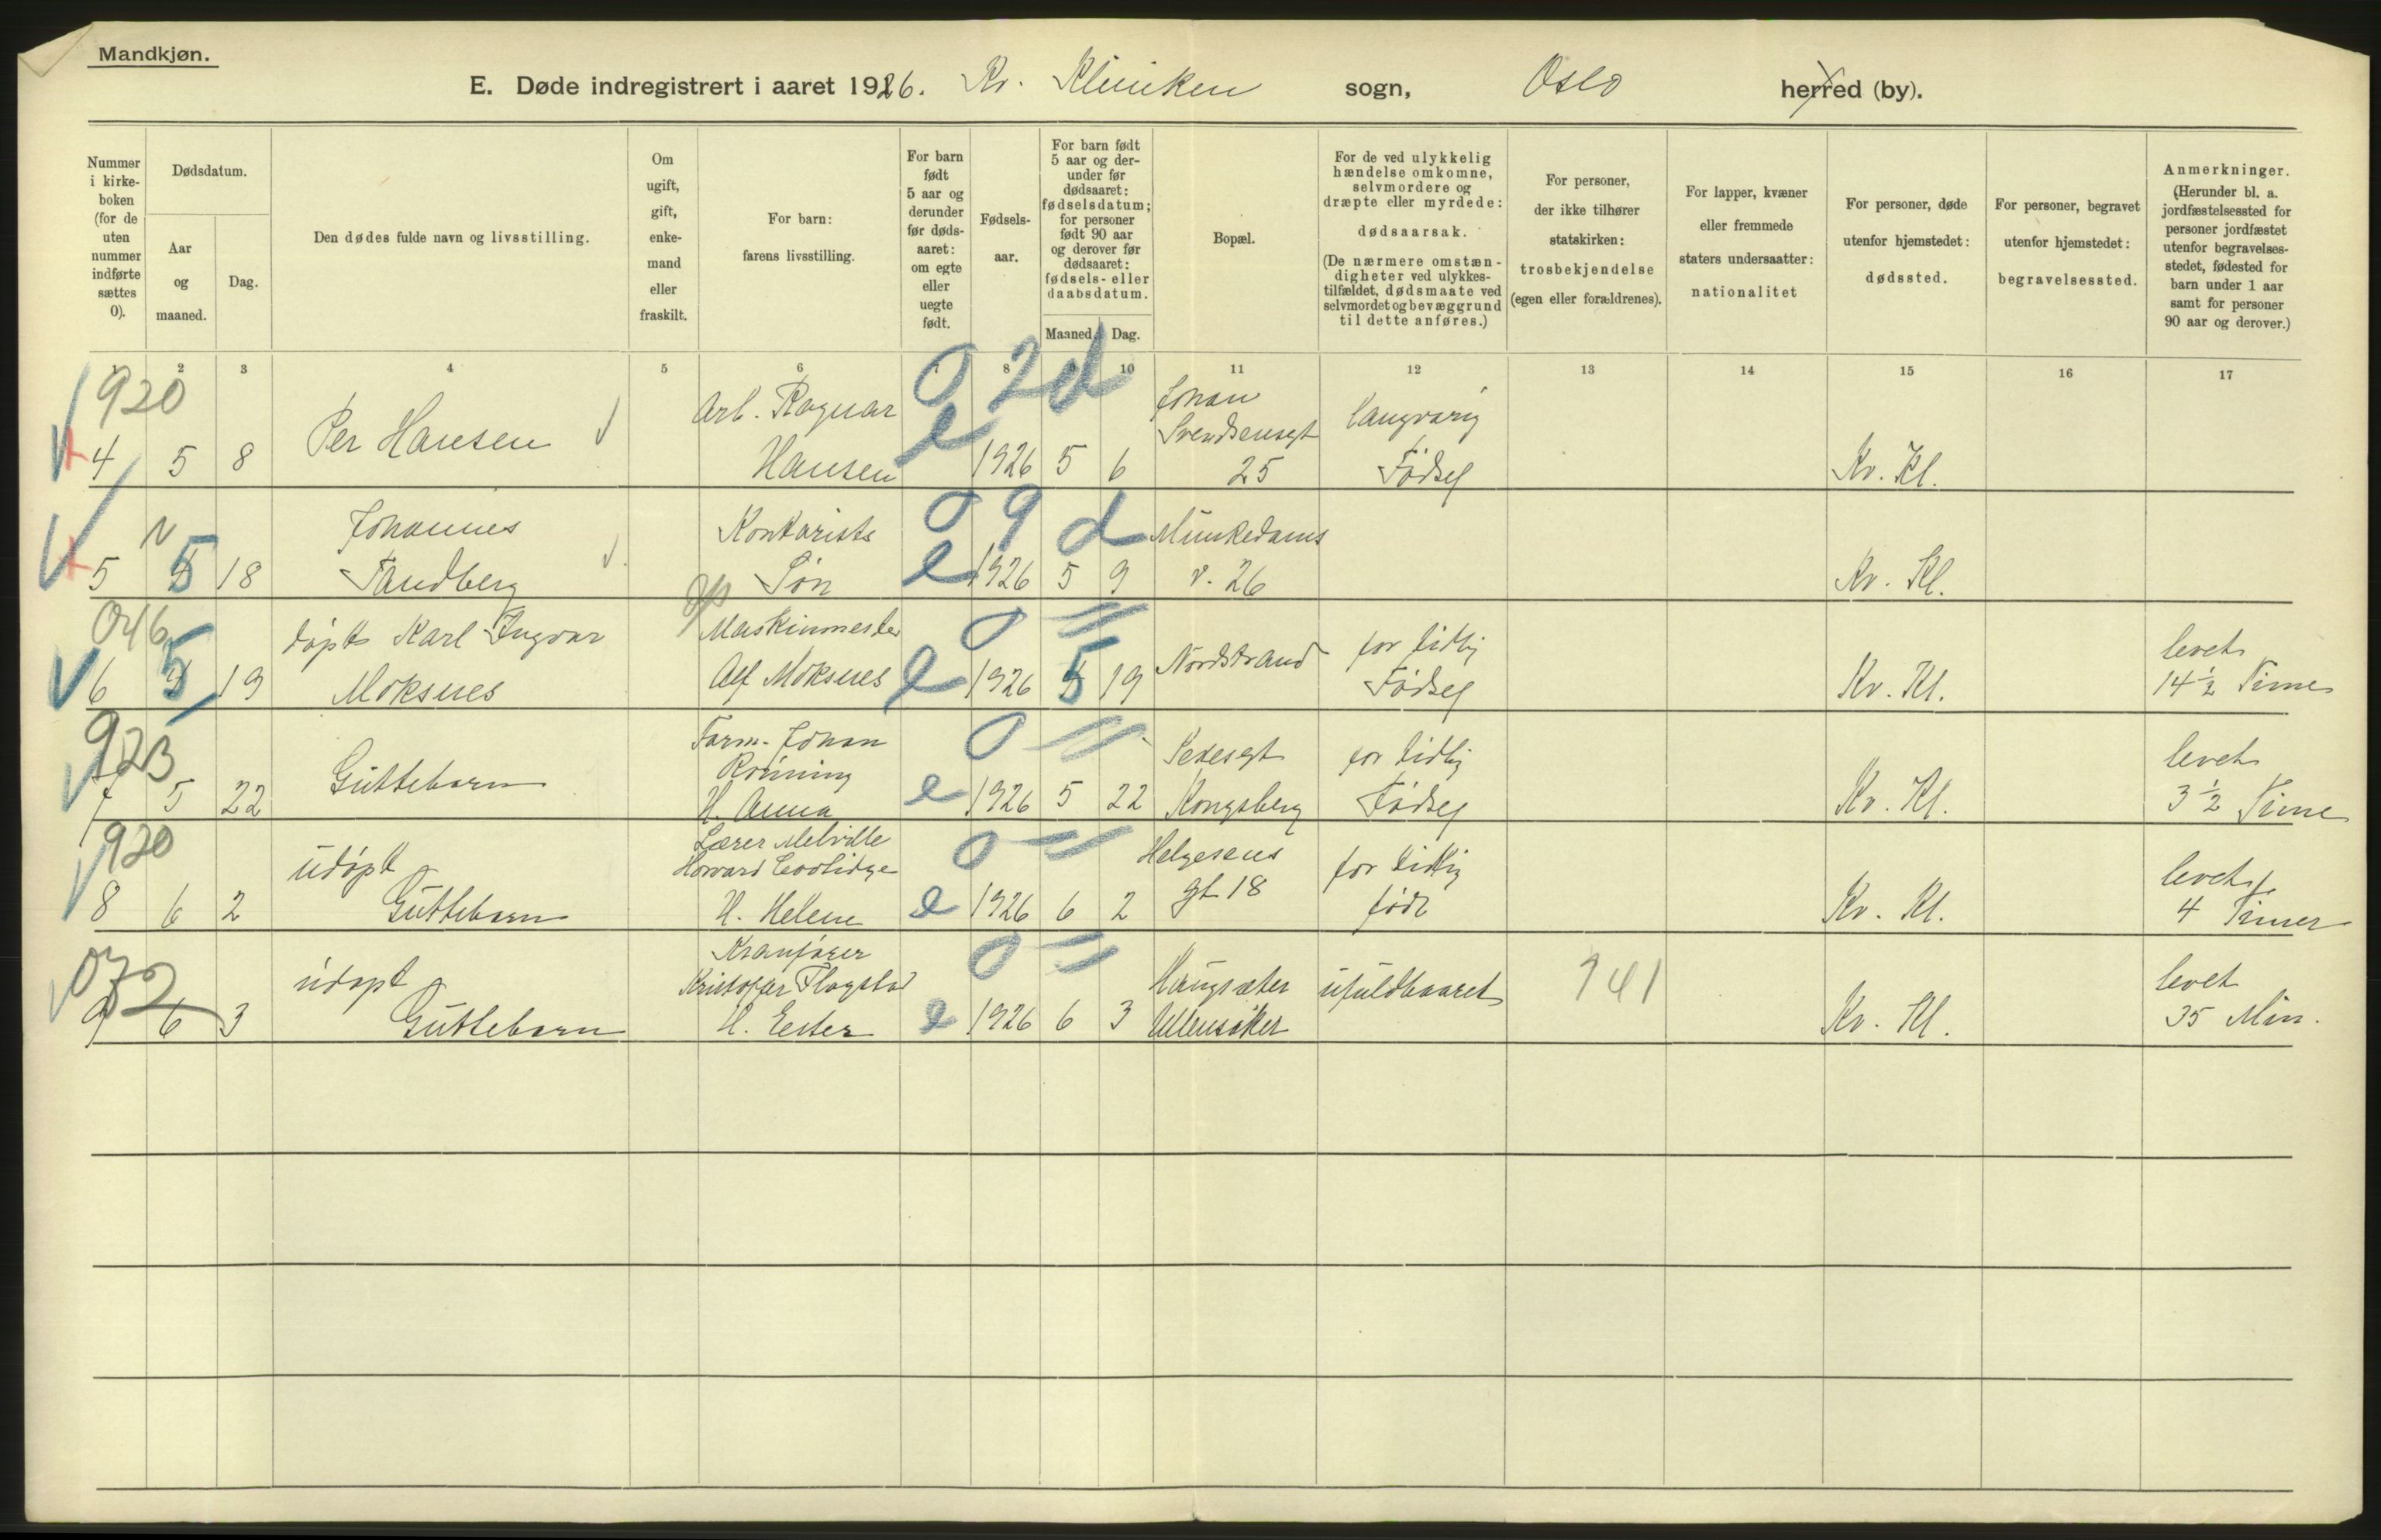 Mandkjøn.
E. Døde indregistrert i aaret 1926. Kv. Kliniken sogn, Oslo herred (by).
Nummer i kirke-boken (for de uten nummer indførte sættes 0).
Dødsdatum.
Aar og maaned.
Dag.
Den dødes fulde navn og livsstilling.
Om ugift, gift, enke-mand eller fraskilt.
For barn: farens livsstilling.
For barn født 5 aar og derunder før døds-aaret: om egte eller uegte født.
Fødsels-aar.
For barn født 5 aar og der-under før dødsaaret: fødselsdatum; for personer født 90 aar og derover før dødsaaret: fødsels- eller daabsdatum.
Maaned.
Dag.
Bopæl.
For de ved ulykkelig hændelse omkomne, selvmordere og dræpte eller myrdede: dødsaarsak.
(De nærmere omstæn-digheter ved ulykkes-tilfældet, dødsmaate ved selvmordet og bevæggrund til dette anføres.)
For personer, der ikke tilhører statskirken: trosbekjendelse (egen eller forældrenes).
For lapper, kvæner eller fremmede staters undersaatter: nationalitet
For personer, døde utenfor hjemstedet: dødssted.
For personer, begravet utenfor hjemstedet: begravelsessted.
Anmerkninger. (Herunder bl. a. jordfæstelsessted for personer jordfæstet utenfor begravelses-stedet, fødested for barn under 1 aar samt for personer 90 aar og derover.)
1 2 3 4 5 6 7 8 9 10 11 12 13 14 15 16 17
920 0 2 d
Arb. Ragnar Johan
Per Hansen Svendsensgt langvarig
4 5 8 Hansen e 1926 5 6 25 Fødsel Kv. Kl.
N Johannes Kontorists 0 9 d Munkedams
5 5 18 Tandberg Søn e 1926 5 9 v. 26 Kv. Kl.
046 døpt Karl Ingvar Maskinmester 0 = for tidlig levet
6 5 19 Moksnes Alf Moksnes e 1926 5 19 Nordstrand Fødsel Kv. Kl. 14 ½ Time
923 Farm. Johan 0 =
Guttebarn Rønning for tidlig levet
7 5 22 H. Anna e 1926 5 22 Kongsberg Fødsel Kv. Kl. 3 ½ Time
920 Lærer Melville 0 = Helgesens
udøpt Howard Coolidge for tidlig levet
8 6 2 Guttebarn H. Helene e 1926 6 2 gt 18 født Kv. Kl. 4 Timer
032 Kranfører 0 =
udøpt Kristofer Flagstad Haugsæter ufuldbaaret 141 levet
9 6 3 Guttebarn H. Ester e 1926 6 3 Ullensaker Kv. Kl. 35 Min.